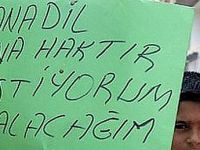 ANADİL
HAKTIR
İSTİYORUM
ALACAĞIM